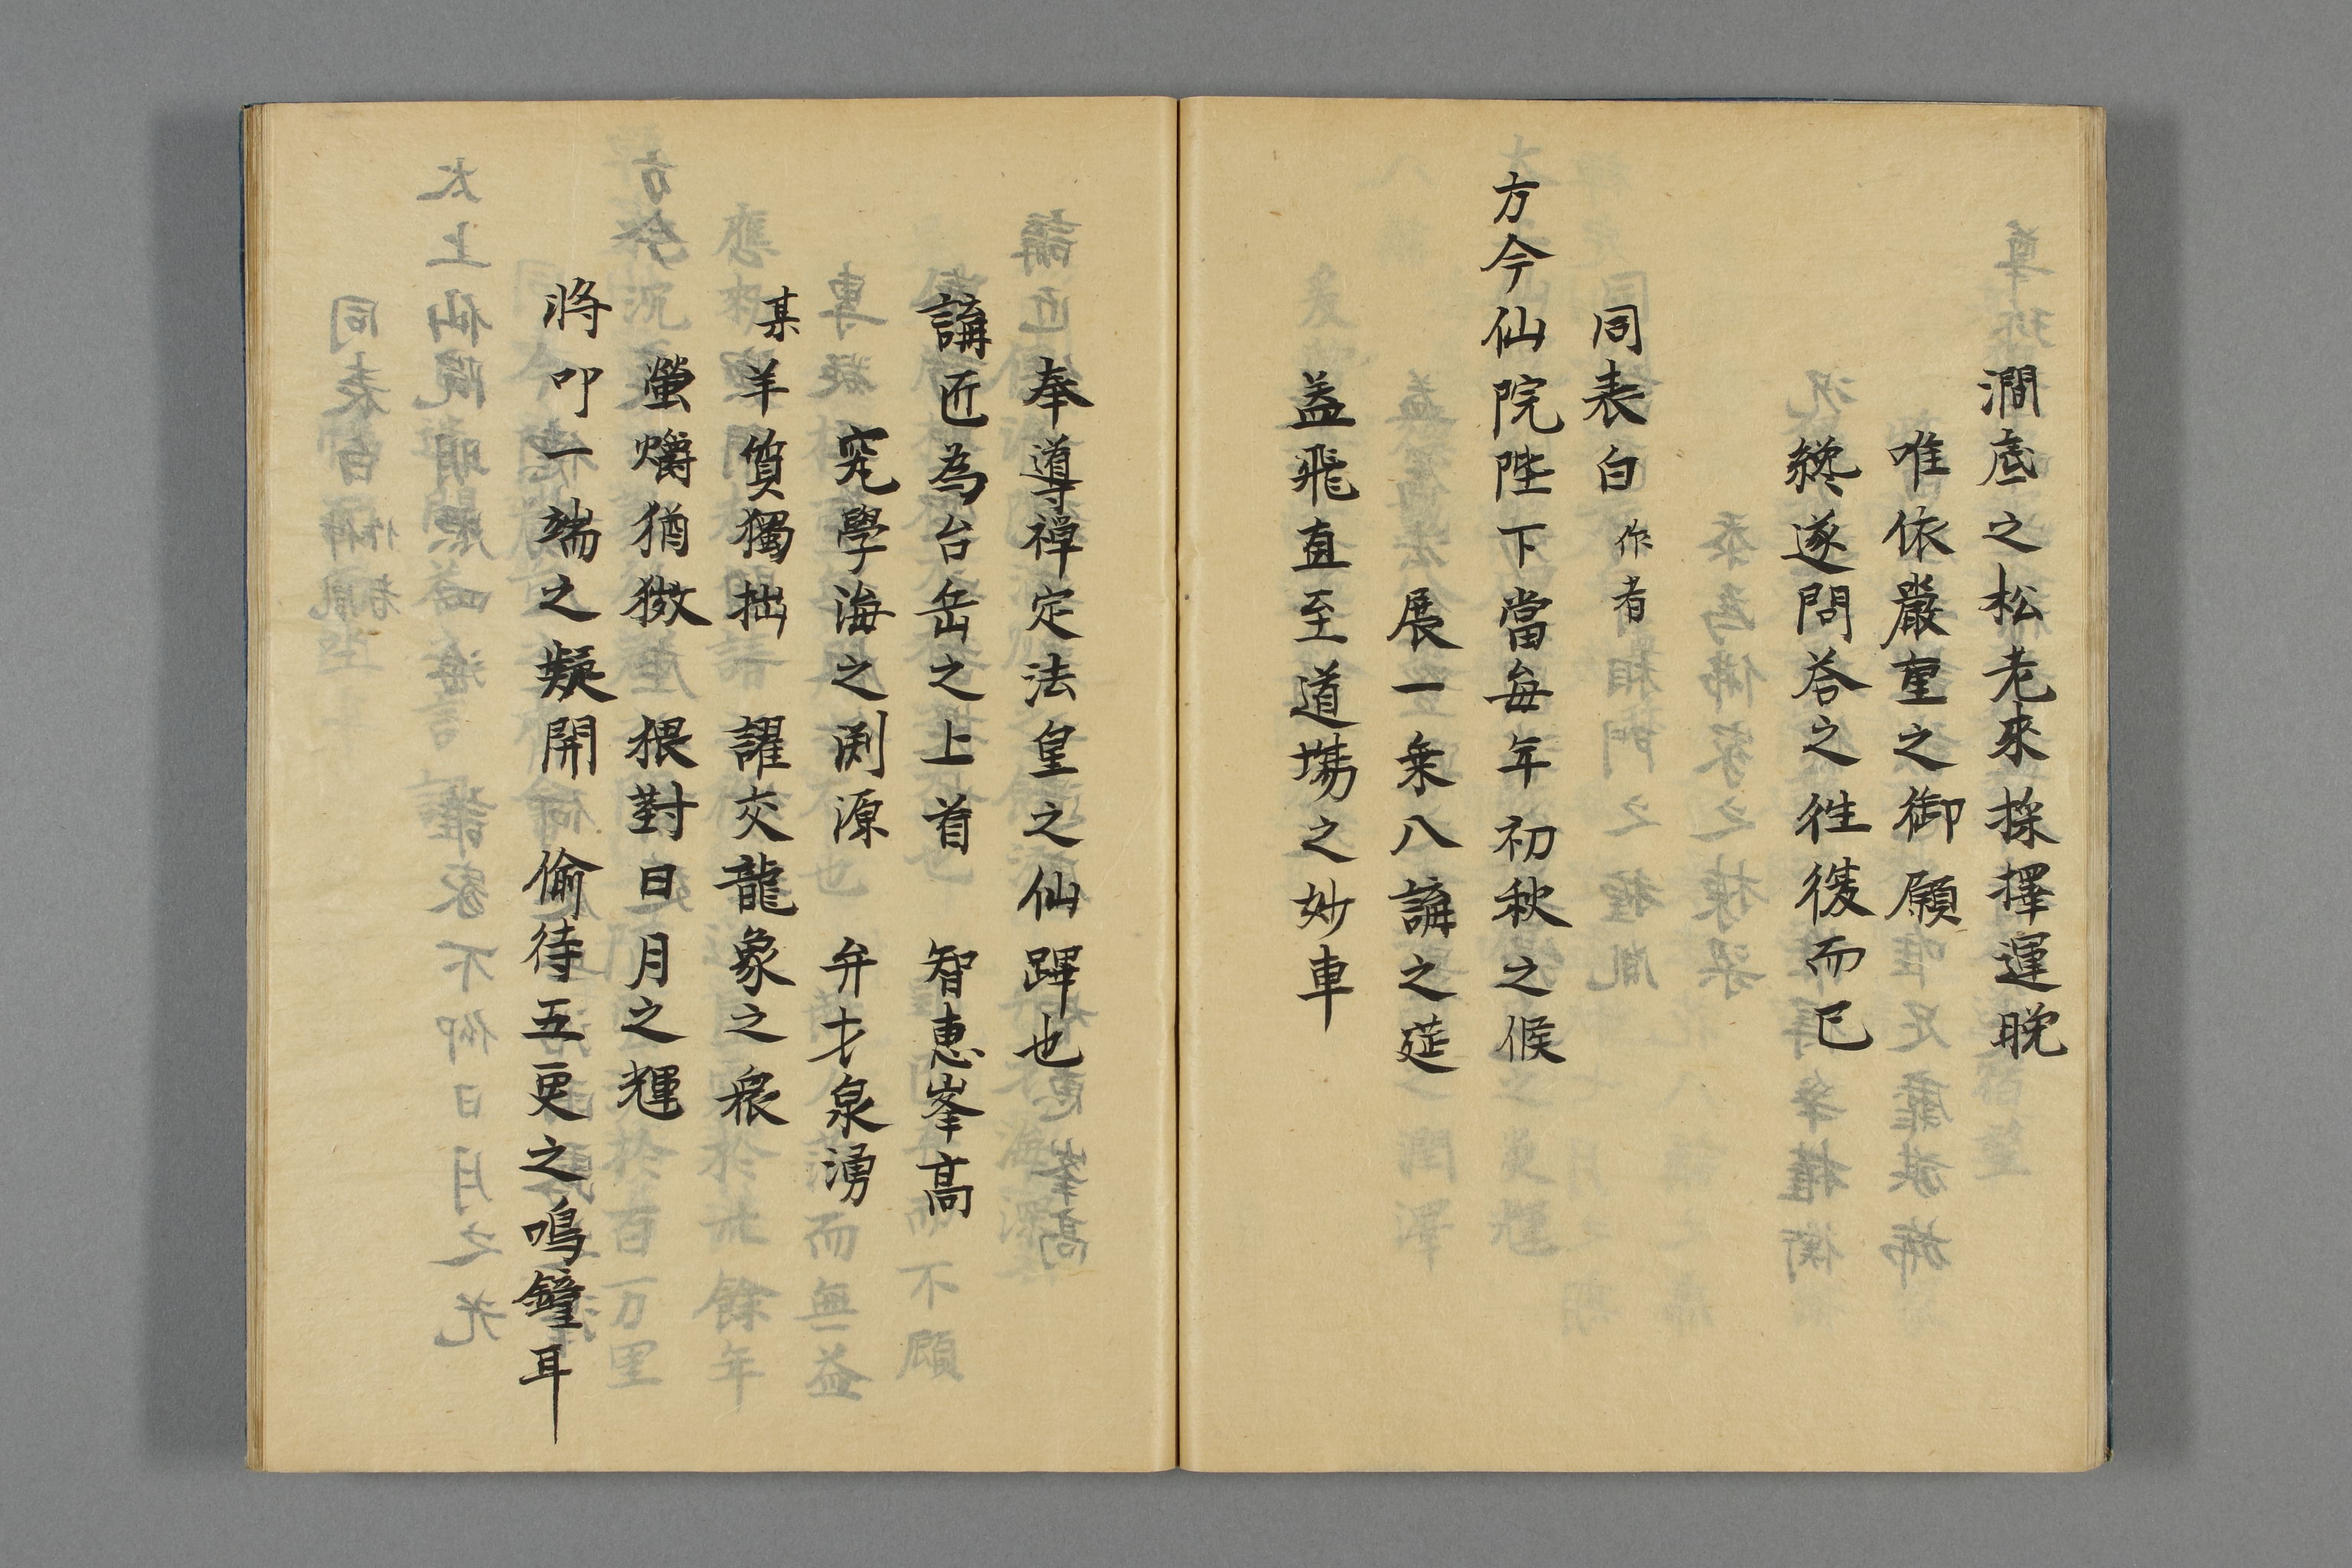 澗底之松老來採擇運晩
唯依嚴重之御願
纔遂問荅之徃複而已
同表白 作者
方今仙院陛下當每年初秋之候
展一乗八講之莚
盖飛直至道場之妙車
奉導禅定法皇之仙蹕也
講匠為台岳之上首 智惠峯高
究學海之渕源 弁才泉湧
某羊質獨拙 謬交龍象之衆
螢爝猶微 猥對日月之輝
將叩一端之疑開 偷待五更之鳴鐘耳